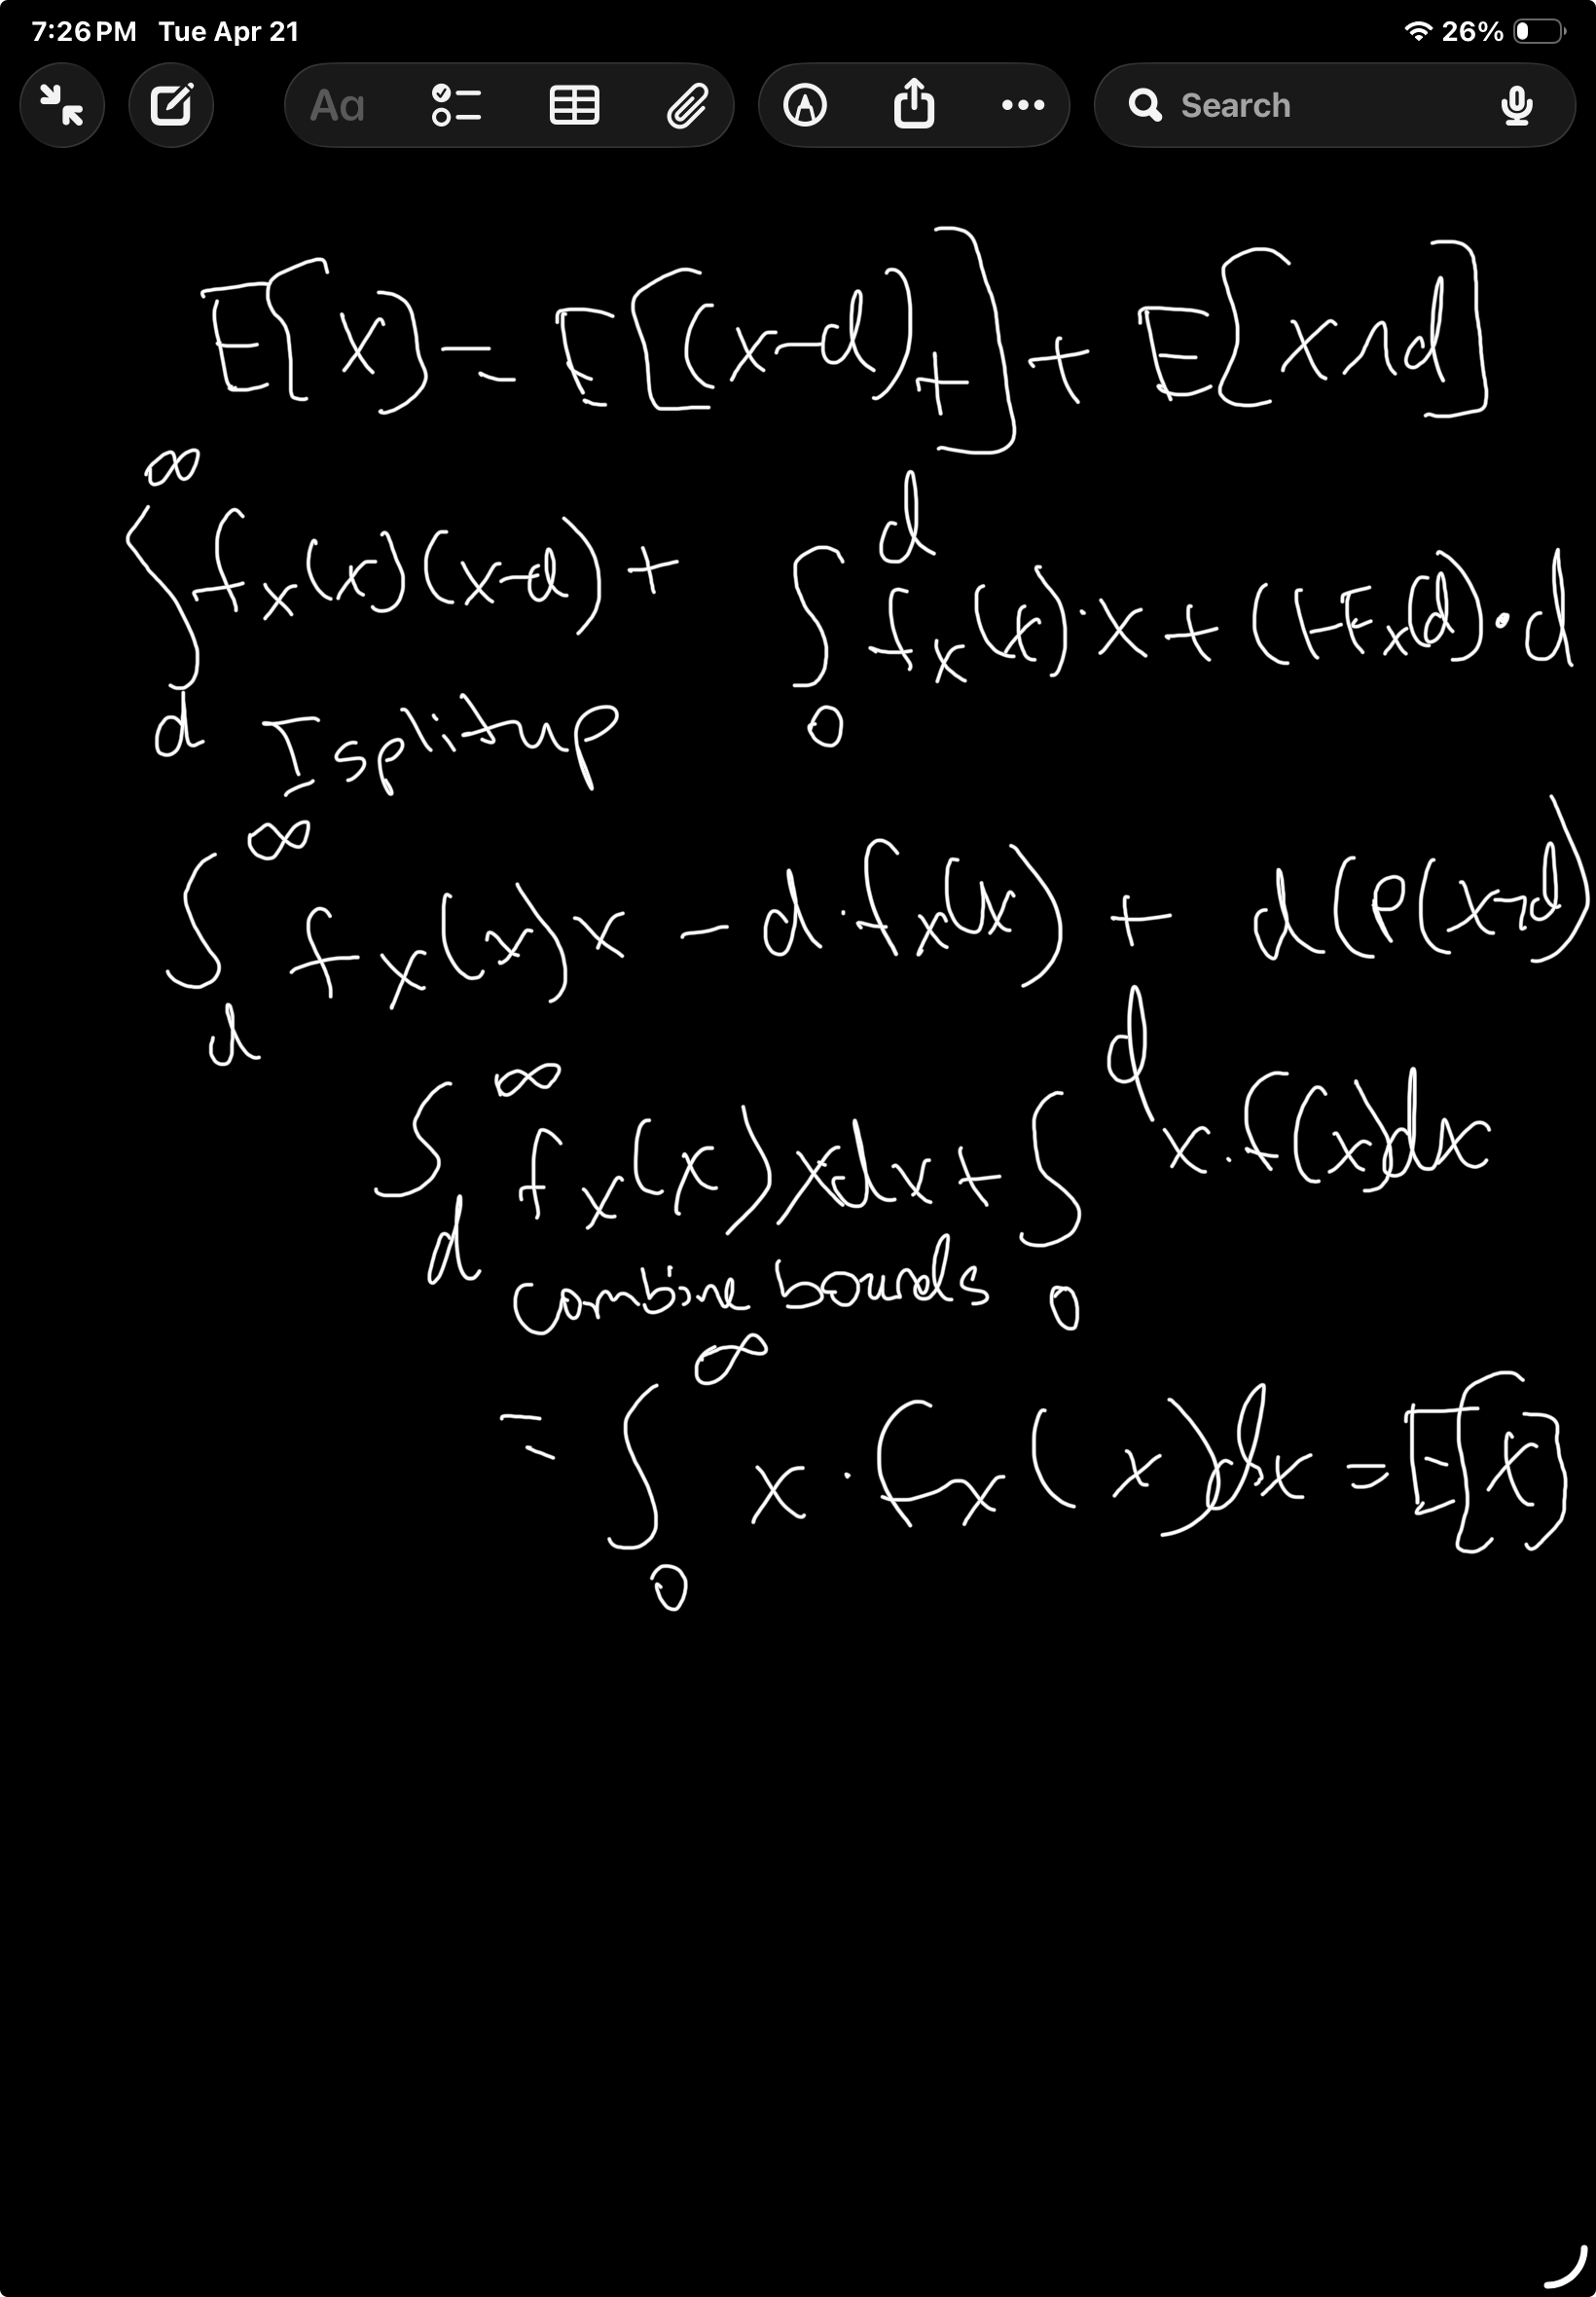 7:26 PM Tue Apr 21 26%
Aa Search
E[x] = E[(x-d)+] + E[x∧d]
∫_d^∞ f_x(x)(x-d) + ∫_0^d f_x(x)·x + (1-F_x(d))·d
I split up
∫_d^∞ f_x(x)x - d·f_x(x)) + d(P(x>d)
∫_d^∞ f_x(x)xdx + ∫_0^d x·f(x)dx
combine bounds
= ∫_0^∞ x·f_x(x)dx = E[x]